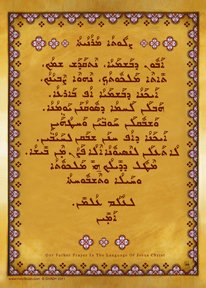 ܨܠܘܬܐ ܡܪܢܝܬܐ
ܐܒܘܢ ܕܒܫܡܝܐ ܢܬܩܕܫ ܫܡܟ
ܬܐܬܐ ܡܠܟܘܬܟ ܢܗܘܐ ܨܒܝܢܟ
ܐܝܟܢܐ ܕܒܫܡܝܐ ܐܦ ܒܐܪܥܐ
ܗܒܠܢ ܠܚܡܐ ܕܣܘܢܩܢܢ ܝܘܡܢܐ
ܘܫܒܘܩܠܢ ܚܘܒܝܢ ܘܚܛܗܝܢ
ܐܝܟܢܐ ܕܐܦ ܚܢܢ ܫܒܩܢ ܠܚܝܒܝܢ
ܠܐ ܬܥܠܢ ܠܢܣܝܘܢܐ ܐܠܐ ܦܨܢ ܡܢ ܒܝܫܐ
ܡܛܠ ܕܕܝܠܟ ܗܝ ܡܠܟܘܬܐ
ܘܚܝܠܐ ܘܬܫܒܘܚܬܐ
ܠܥܠܡ ܥܠܡܝܢ
ܐܡܝܢ
Our Father Prayer In The Language Of Jesus Christ